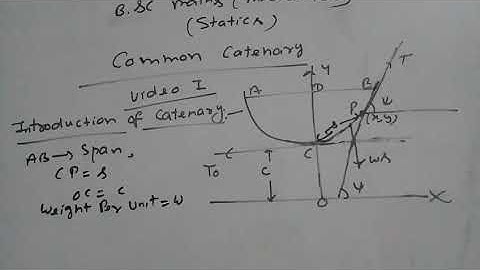 B.SC Mains
(Statics)
Common Catenary
Video I
Introduction of Catenary:-
AB → Span,
CP = s
OC = C
Weight Per Unit = W
A
D
y
B
T
P
(x, y)
ψ
s
C
T₀
C
ws
ψ
O
X